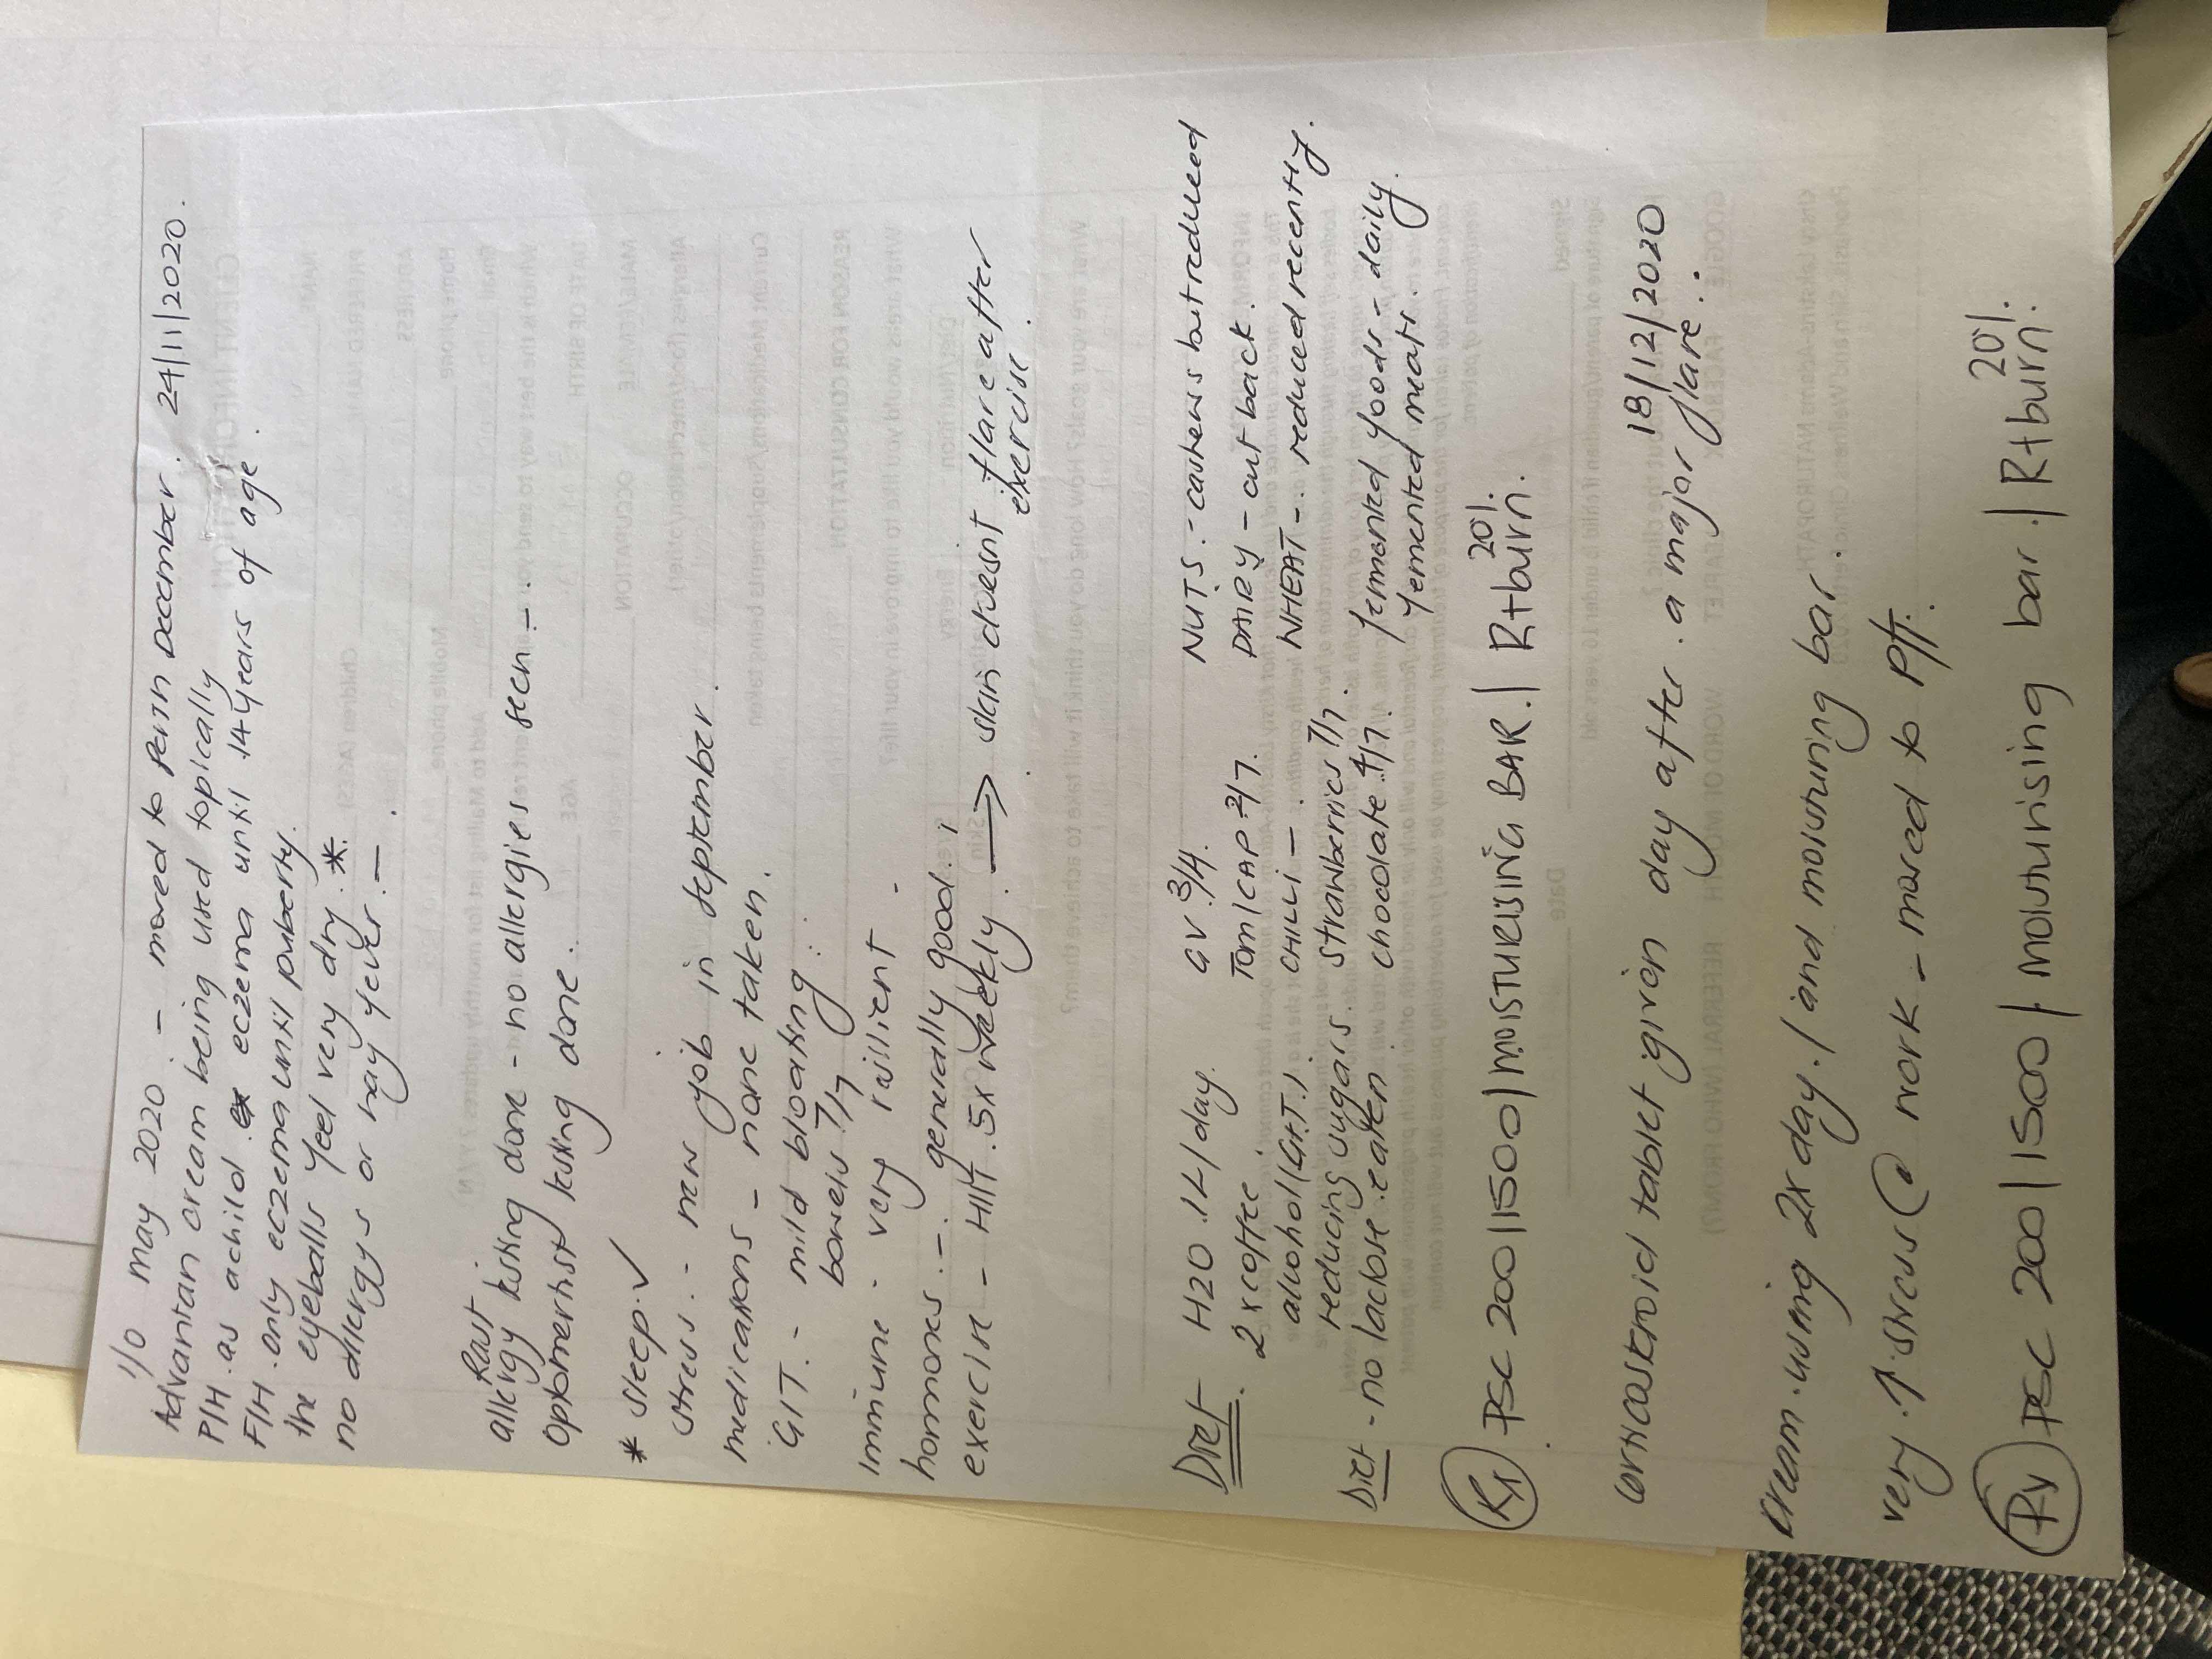 I/O may 2020 - moved to Perth December. 24/11/2020.
Advantan cream being used topically
P/H. as a child. eczema until 14 years of age.
F/H. only eczema until puberty.
the eyeballs feel very dry. *.
no allergys or hay fever. -
Rast
allergy testing done - no allergies seen. -
Optomertist testing done.
* Sleep. ✓
stress. - new job in september.
medications - none taken.
GIT. - mild bloating.
bowels 7/7
immune - very resilient -
hormones. - generally good.
exercise - HIIT. 5x weekly. → skin doesnt flare after
exercise.
Diet. H20 .1L/day. GV. 3/4. NUTS. - cashews but reduced
2 x coffee. TOM/CAP. 2/7. DAIRY - cut back.
alcohol (G+T.) CHILLI - . WHEAT - reduced recently.
reducing sugars. strawberries 7/7. fermented foods - daily
Diet - no lactose eaten chocolate 7/7. femented meats.
Rx PSC 200 | 1500 | MOISTURISING BAR. | R+burn. 20%.
18/12/2020
corticosteroid tablet given day after. a major flare.
cream. using 2x day. / and moisturing bar.
very. ↑ stress @ work - moved to P/T.
Rx PSC 200 | 1500 | moisturising bar. | R+burn. 20%.